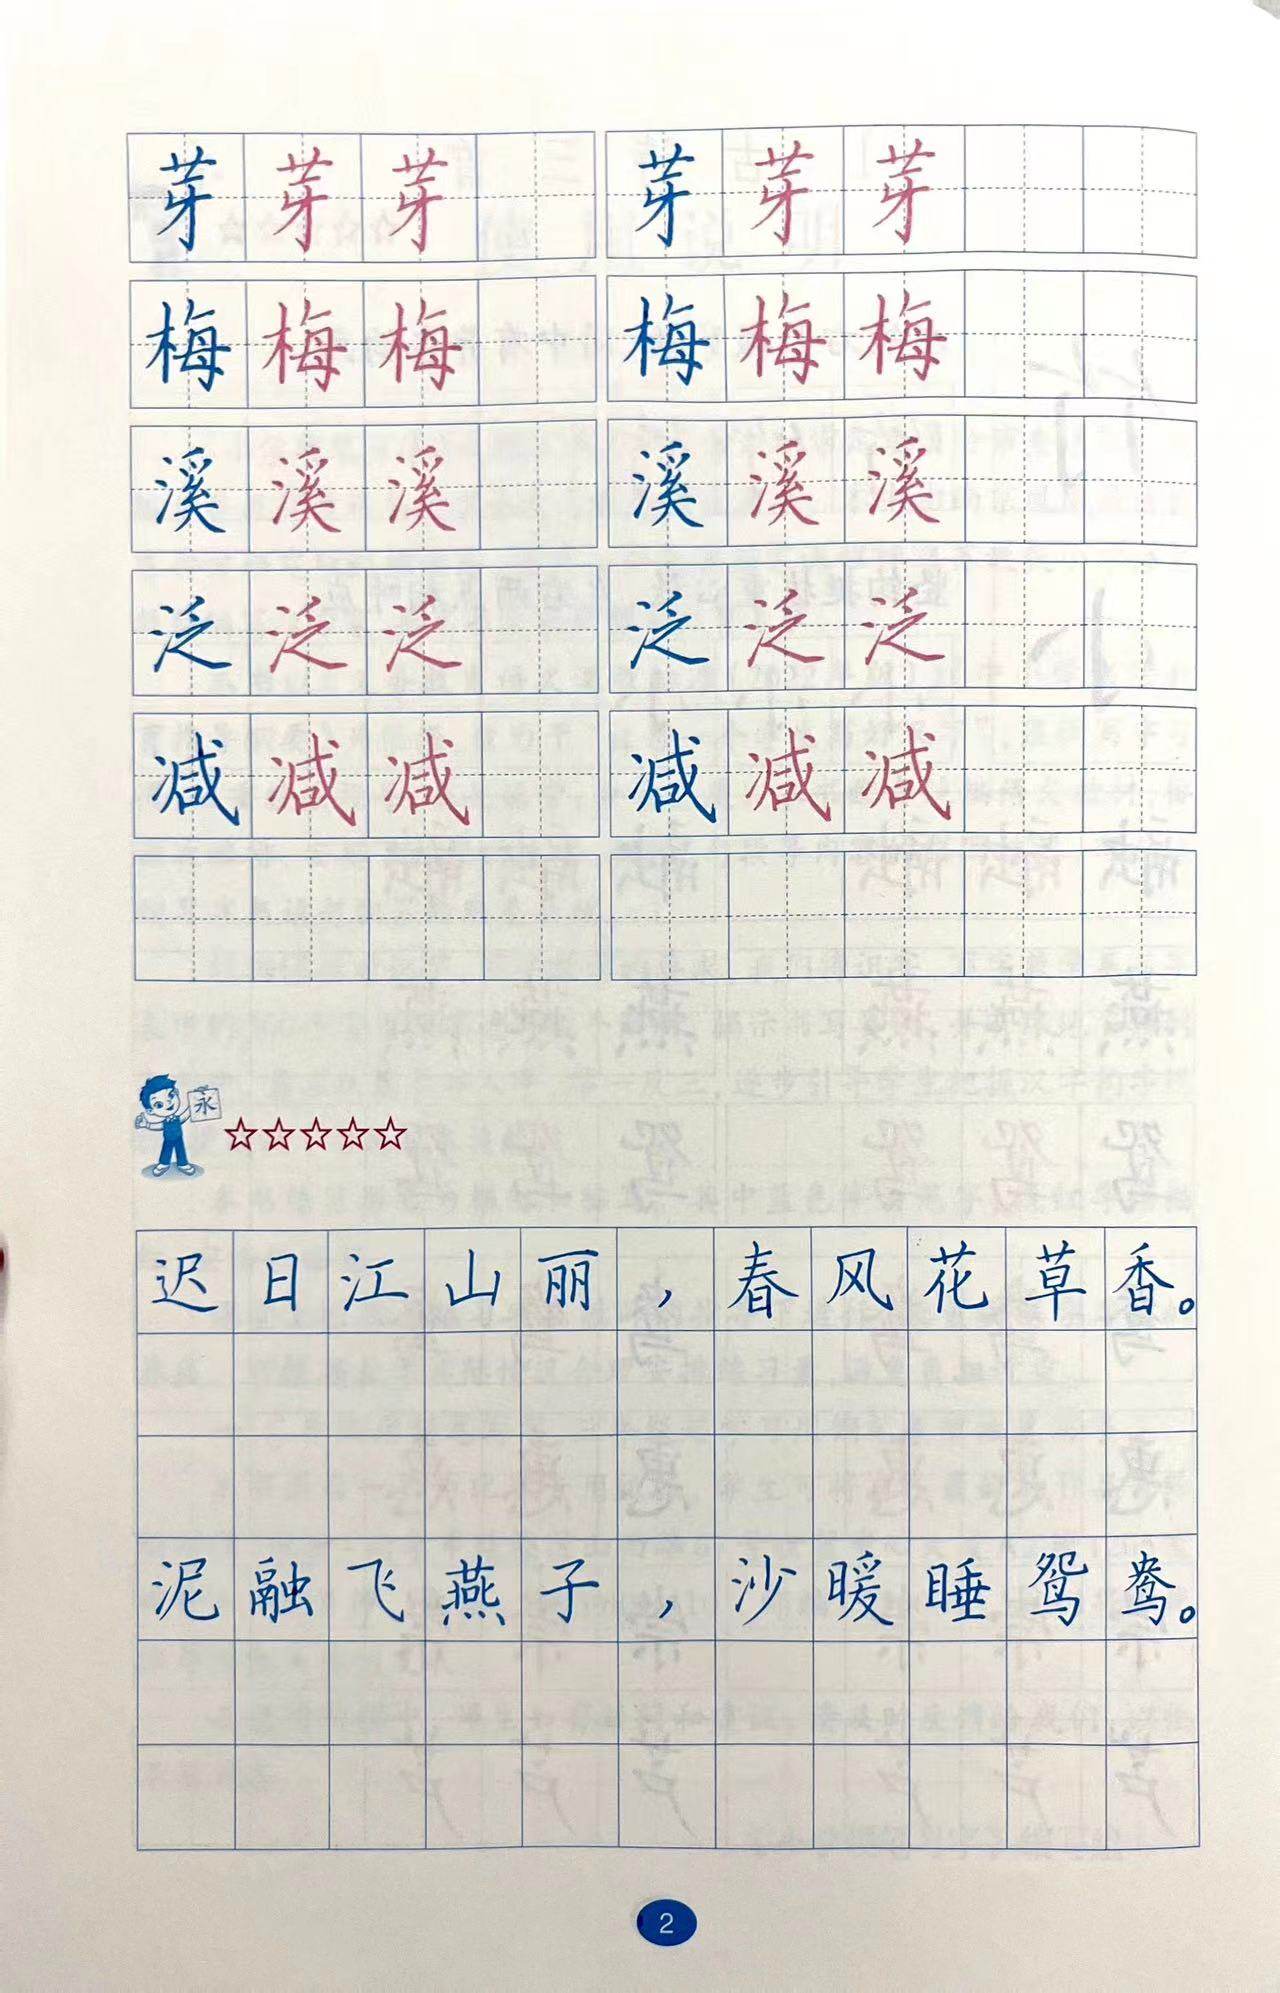 芽芽芽 芽芽芽
梅梅梅 梅梅梅
溪溪溪 溪溪溪
泛泛泛 泛泛泛
减减减 减减减
永
迟日江山丽，春风花草香。
泥融飞燕子，沙暖睡鸳鸯。
2